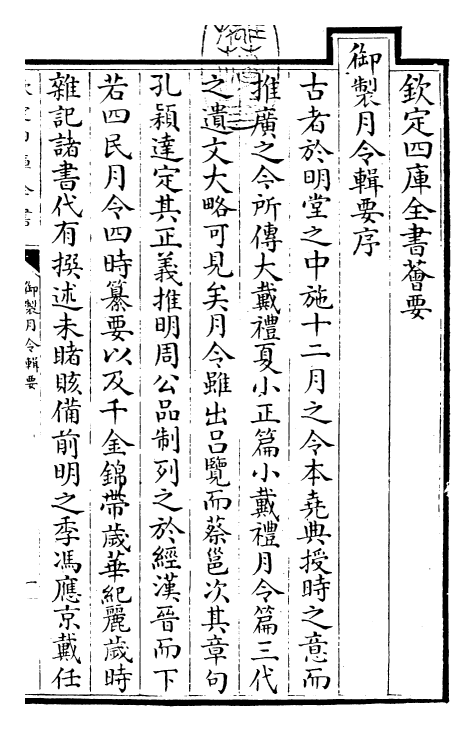 欽定四庫全書薈要
御製月令輯要序
古者於明堂之中施十二月之令本堯典授時之意而
推廣之今所傳大戴禮夏小正篇小戴禮月令篇三代
之遺文大略可見矣月令雖出呂覽而蔡邕次其章句
孔穎達定其正義推明周公品制列之於經漢晉而下
若四民月令四時纂要以及千金錦帶歲華紀麗歲時
雜記諸書代有撰述未睹賅備前明之季馮應京戴任
御製月令輯要
一